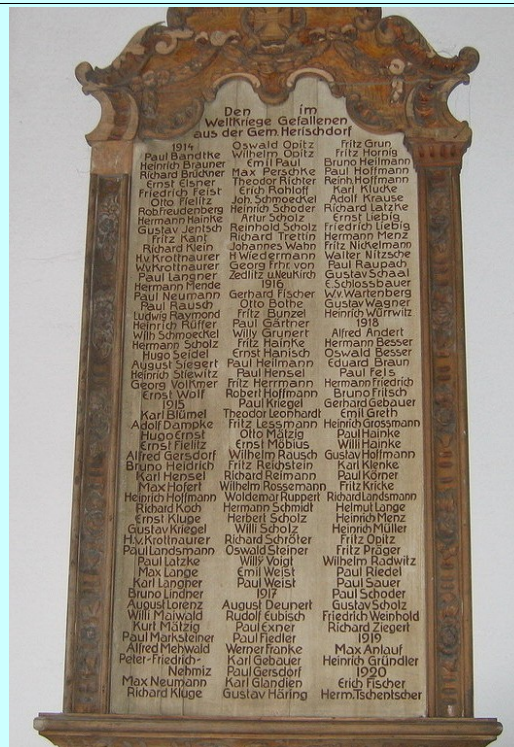 Den im
Weltkriege Gefallenen
aus der Gem. Herischdorf
1914
Paul Bandtke
Heinrich Brauner
Richard Brückner
Ernst Elsner
Friedrich Feist
Otto Pfelitz
Rob. Freudenberg
Hermann Hainke
Gustav Jentsch
Fritz Kant
Richard Klein
H.v. Krottnaurer
W.v. Krottnaurer
Paul Langner
Hermann Mende
Paul Neumann
Paul Rausch
Ludwig Raymond
Heinrich Rüffer
Wilh Schmoeckel
Hermann Scholz
Hugo Seidel
August Siegert
Heinrich Stiewitz
Georg Volkmer
Ernst Wolf
1915
Karl Blümel
Adolf Dampke
Hugo Ernst
Ernst Fielitz
Alfred Gersdorf
Bruno Heidrich
Karl Hensel
Max Hofert
Heinrich Hoffmann
Richard Koch
Ernst Kluge
Gustav Kriegel
H.v. Krottnaurer
Paul Landsmann
Paul Latzke
Max Lange
Karl Langner
Bruno Lindner
August Lorenz
Willi Maiwald
Kurt Mätzig
Paul Marksteiner
Alfred Mehwald
Peter-Friedrich-
Nehmiz
Max Neumann
Richard Kluge
Oswald Opitz
Wilhelm Opitz
Emil Paul
Max Perschke
Theodor Richter
Erich Rohloff
Joh. Schmoeckel
Heinrich Schoder
Artur Scholz
Reinhold Scholz
Richard Trettin
Johannes Wahn
H Wiedermann
Georg Frhr. von
Zedlitz u. Neukirch
1916
Gerhard Fischer
Otto Bothe
Fritz Bunzel
Paul Gärtner
Willy Grunert
Fritz Hainke
Ernst Hanisch
Paul Heilmann
Paul Hensel
Fritz Herrmann
Robert Hoffmann
Paul Kriegel
Theodor Leonhardt
Fritz Lessmann
Otto Mätzig
Ernst Möbius
Wilhelm Rausch
Fritz Reichstein
Richard Reimann
Wilhelm Rossemann
Woldemar Ruppert
Hermann Schmidt
Herbert Scholz
Willi Scholz
Richard Schröter
Oswald Steiner
Willy Voigt
Emil Weist
Paul Weist
1917
August Deunert
Rudolf Eubisch
Paul Exner
Paul Fiedler
Werner Franke
Karl Gebauer
Paul Gersdorf
Karl Glandien
Gustav Häring
Fritz Grun
Fritz Hornig
Bruno Heilmann
Paul Hoffmann
Reinh Hoffmann
Karl Klucke
Adolf Krause
Richard Latzke
Ernst Liebig
Friedrich Liebig
Hermann Menz
Fritz Nickelmann
Walter Nitzsche
Paul Raupach
Gustav Schaal
E. Schlossbauer
W.v. Wartenberg
Gustav Wagner
Heinrich Würrwitz
1918
Alfred Andert
Hermann Besser
Oswald Besser
Eduard Braun
Paul Fels
Hermann Friedrich
Bruno Fritsch
Gerhard Gebauer
Emil Greth
Heinrich Grossmann
Paul Hainke
Willi Hainke
Gustav Hoffmann
Karl Klenke
Paul Körner
Fritz Kricke
Richard Landsmann
Helmut Lange
Heinrich Menz
Heinrich Müller
Fritz Opitz
Fritz Präger
Wilhelm Radwitz
Paul Riedel
Paul Sauer
Paul Schoder
Gustav Scholz
Friedrich Weinhold
Richard Ziegert
1919
Max Anlauf
Heinrich Gründler
1920
Erich Fischer
Herm. Tschentscher